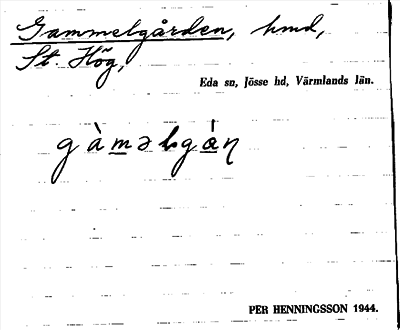 Gammelgården, hmd,
St. Hög,
Eda sn, Jösse hd, Värmlands län.
PER HENNINGSSON 1944.